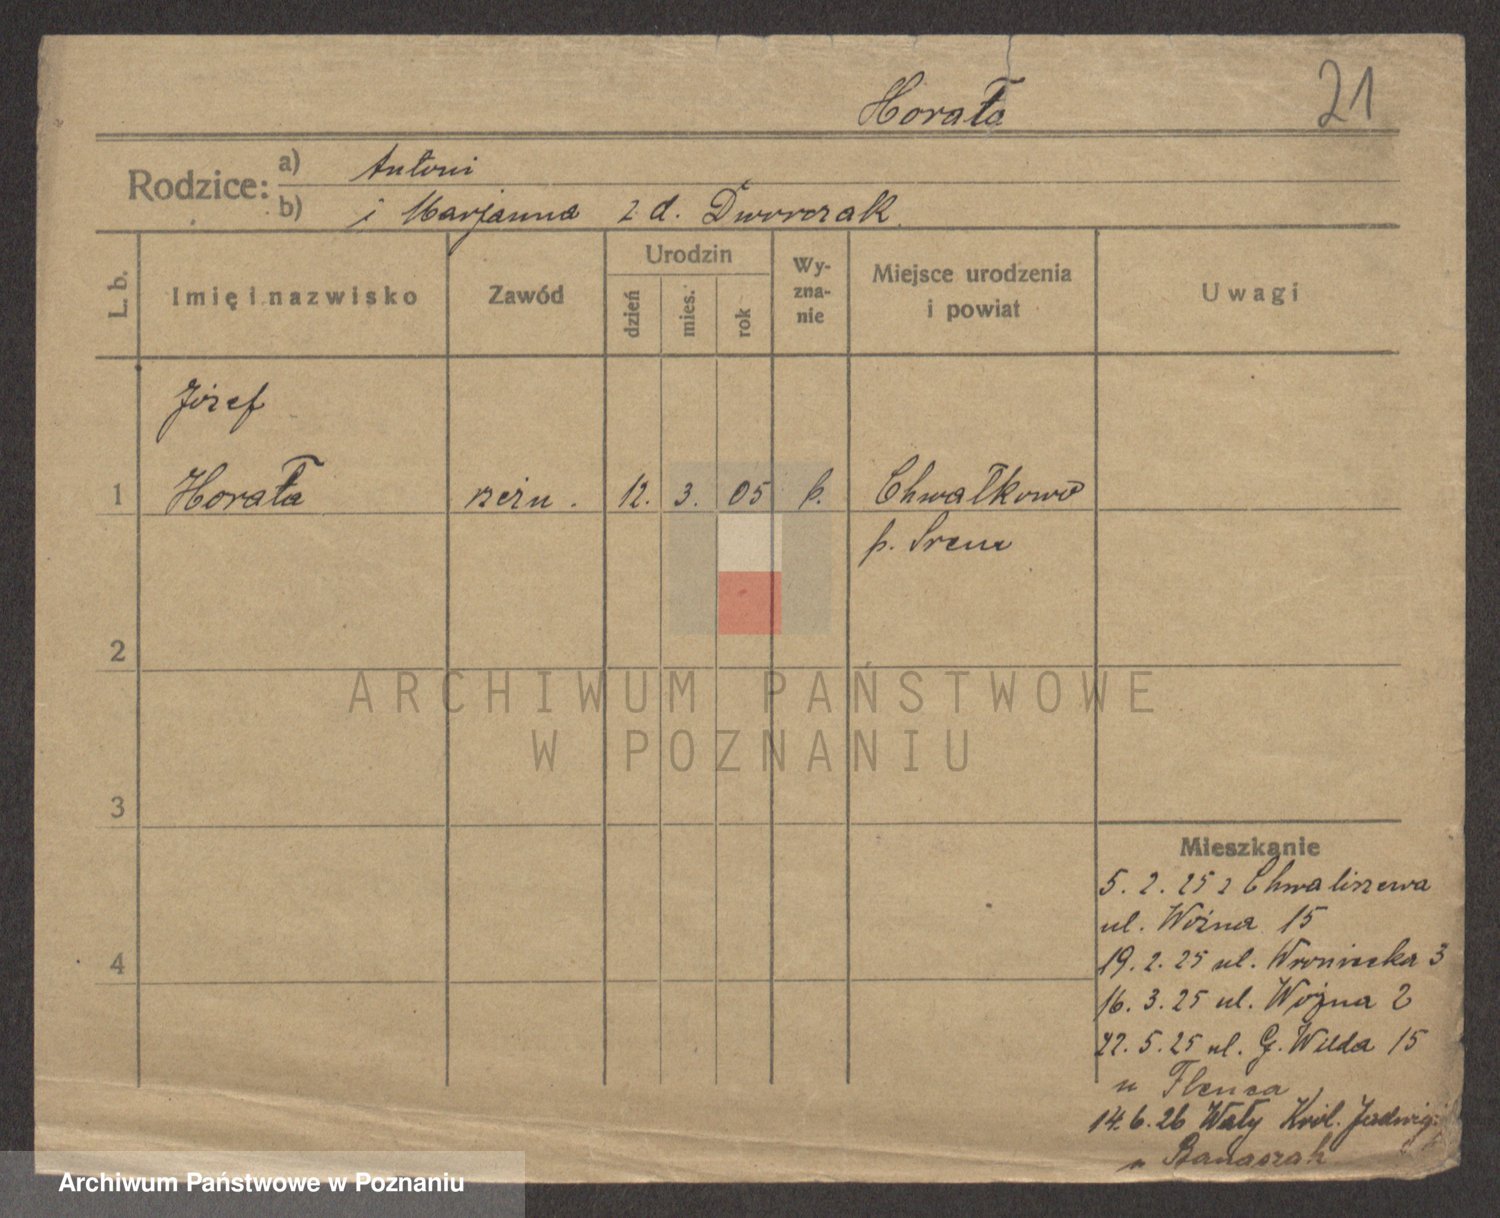 Horała
21
Rodzice:
a) Antoni
b) i Marjanna z d. Dworczak
L. b.
Imię i nazwisko
Zawód
Urodzin
dzień
mies.
rok
Wy-
zna-
nie
Miejsce urodzenia
i powiat
Uwagi
Józef
1 Horała rzeźn. 12. 3. 05 k. Chwałkowo
p. Śrem
2
3
4
ARCHIWUM PAŃSTWOWE
W POZNANIU
Mieszkanie
5. 2. 25 z Chwaliszewa
ul. Woźna 15
19. 2. 25 ul. Wroniecka 3
16. 3. 25 ul. Woźna 2
22. 5. 25 ul. G. Wilda 15
u
14. 6. 26 Wały Król. Jadwigi
u Banaszak
Archiwum Państwowe w Poznaniu